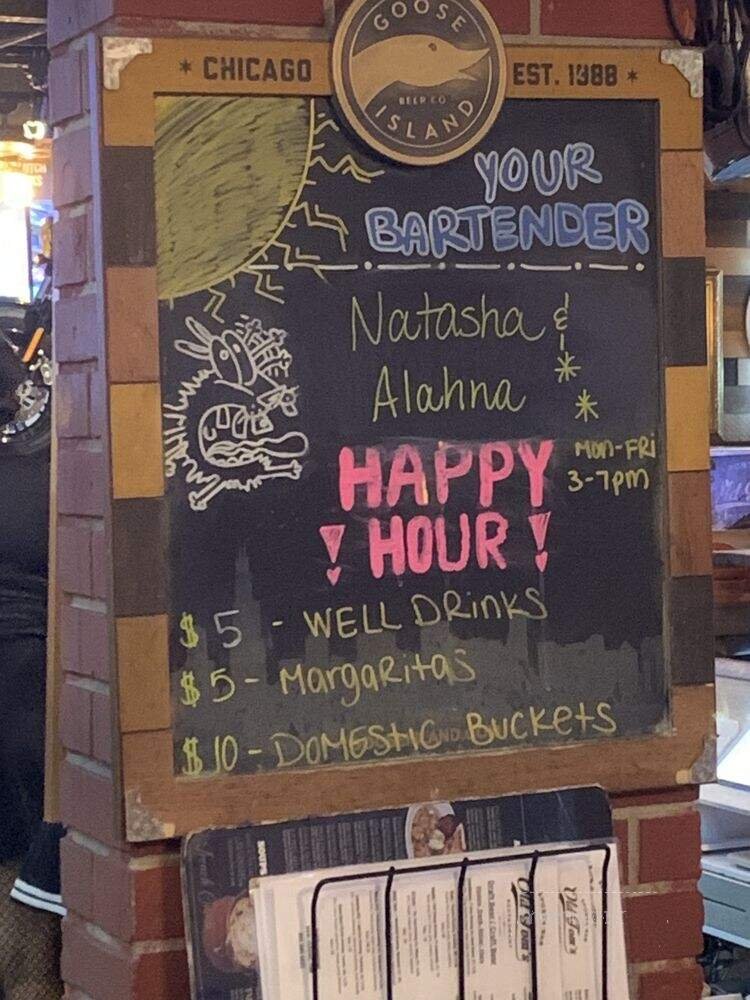 GOOSE
* CHICAGO
EST. 1988 *
BEER CO
ISLAND
YOUR
BARTENDER
Natasha &
Alahna
HAPPY
MON-FRI
3-7pm
! HOUR !
$5 - WELL DRinKS
$5 - MargaRitas
$10 - DOMEStIC BucKets
Old Tom's
Old Tom's